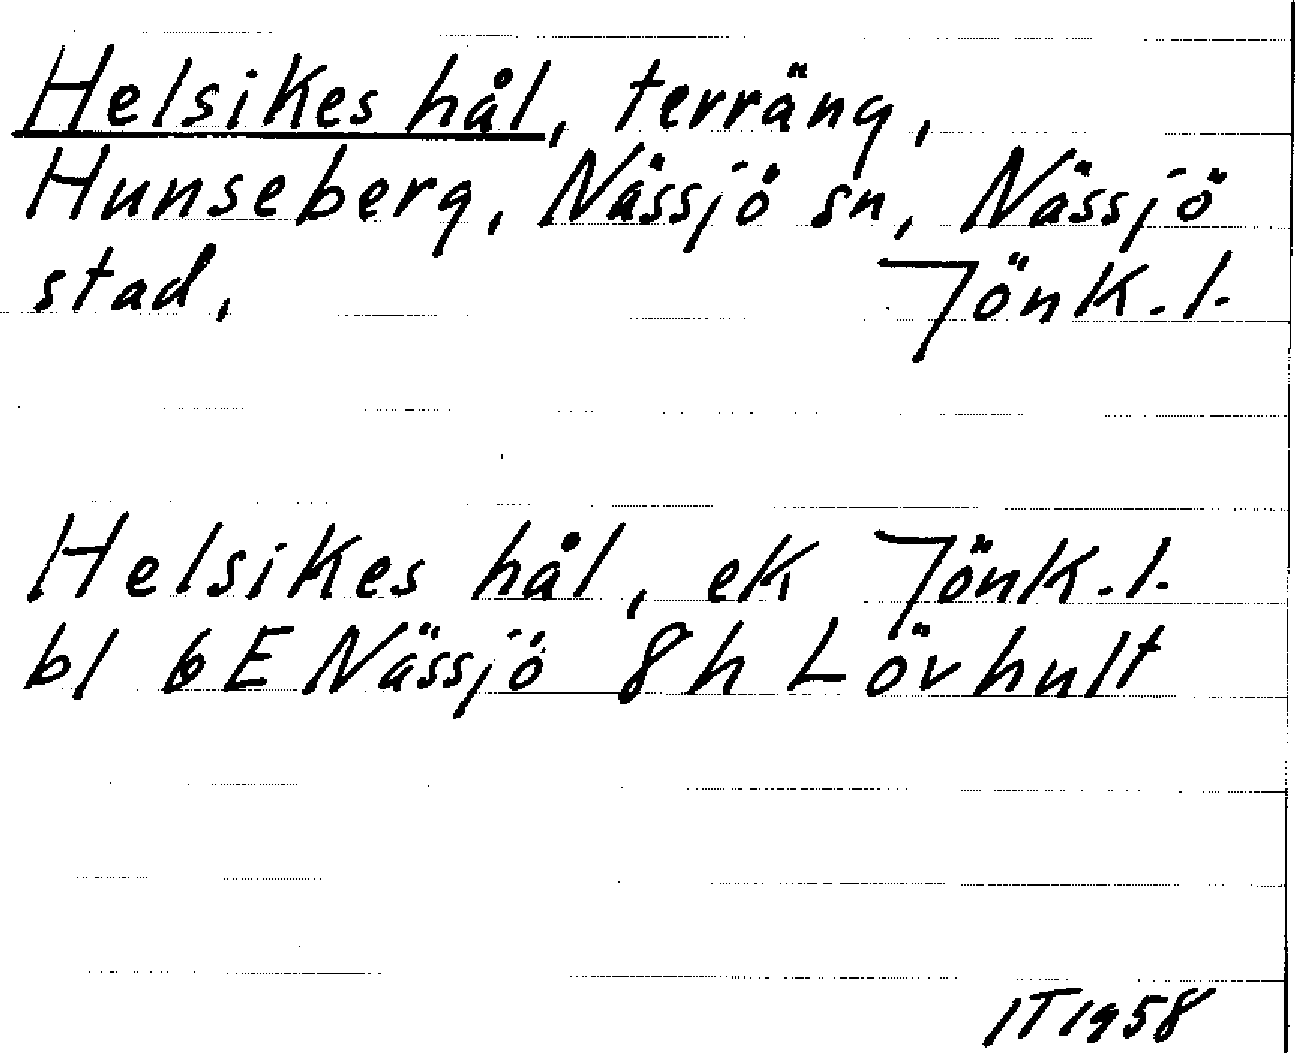 Helsikes hål, terräng,
Hunseberg, Nässjö sn, Nässjö
stad, Jönk.l.
Helsikes hål, ek Jönk.l.
bl 6E Nässjö 8h Lövhult
IT1958